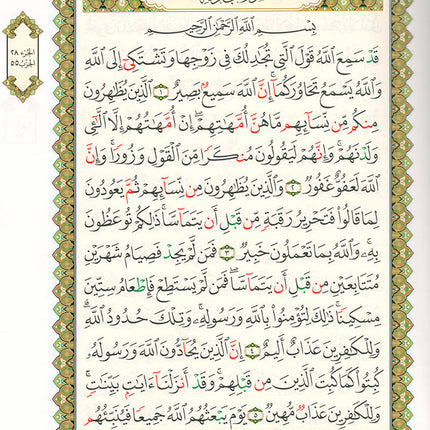 الجزء ٢٨
الحزب ٥٥
بِسْمِ اللَّهِ الرَّحْمَٰنِ الرَّحِيمِ
قَدْ سَمِعَ اللَّهُ قَوْلَ الَّتِي تُجَادِلُكَ فِي زَوْجِهَا وَتَشْتَكِي إِلَى اللَّهِ
وَاللَّهُ يَسْمَعُ تَحَاوُرَكُمَا ۚ إِنَّ اللَّهَ سَمِيعٌ بَصِيرٌ ١ الَّذِينَ يُظَاهِرُونَ
مِنكُم مِّن نِّسَائِهِم مَّا هُنَّ أُمَّهَاتِهِمْ ۖ إِنْ أُمَّهَاتُهُمْ إِلَّا اللَّائِي
وَلَدْنَهُمْ ۚ وَإِنَّهُمْ لَيَقُولُونَ مُنكَرًا مِّنَ الْقَوْلِ وَزُورًا ۚ وَإِنَّ
اللَّهَ لَعَفُوٌّ غَفُورٌ ٢ وَالَّذِينَ يُظَاهِرُونَ مِن نِّسَائِهِمْ ثُمَّ يَعُودُونَ
لِمَا قَالُوا فَتَحْرِيرُ رَقَبَةٍ مِّن قَبْلِ أَن يَتَمَاسَّا ۚ ذَٰلِكُمْ تُوعَظُونَ
بِهِ ۚ وَاللَّهُ بِمَا تَعْمَلُونَ خَبِيرٌ ٣ فَمَن لَّمْ يَجِدْ فَصِيَامُ شَهْرَيْنِ
مُتَتَابِعَيْنِ مِن قَبْلِ أَن يَتَمَاسَّا ۖ فَمَن لَّمْ يَسْتَطِعْ فَإِطْعَامُ سِتِّينَ
مِسْكِينًا ۚ ذَٰلِكَ لِتُؤْمِنُوا بِاللَّهِ وَرَسُولِهِ ۚ وَتِلْكَ حُدُودُ اللَّهِ ۗ
وَلِلْكَافِرِينَ عَذَابٌ أَلِيمٌ ٤ إِنَّ الَّذِينَ يُحَادُّونَ اللَّهَ وَرَسُولَهُ
كُبِتُوا كَمَا كُبِتَ الَّذِينَ مِن قَبْلِهِمْ ۚ وَقَدْ أَنزَلْنَا آيَاتٍ بَيِّنَاتٍ ۚ
وَلِلْكَافِرِينَ عَذَابٌ مُّهِينٌ ٥ يَوْمَ يَبْعَثُهُمُ اللَّهُ جَمِيعًا فَيُنَبِّئُهُم